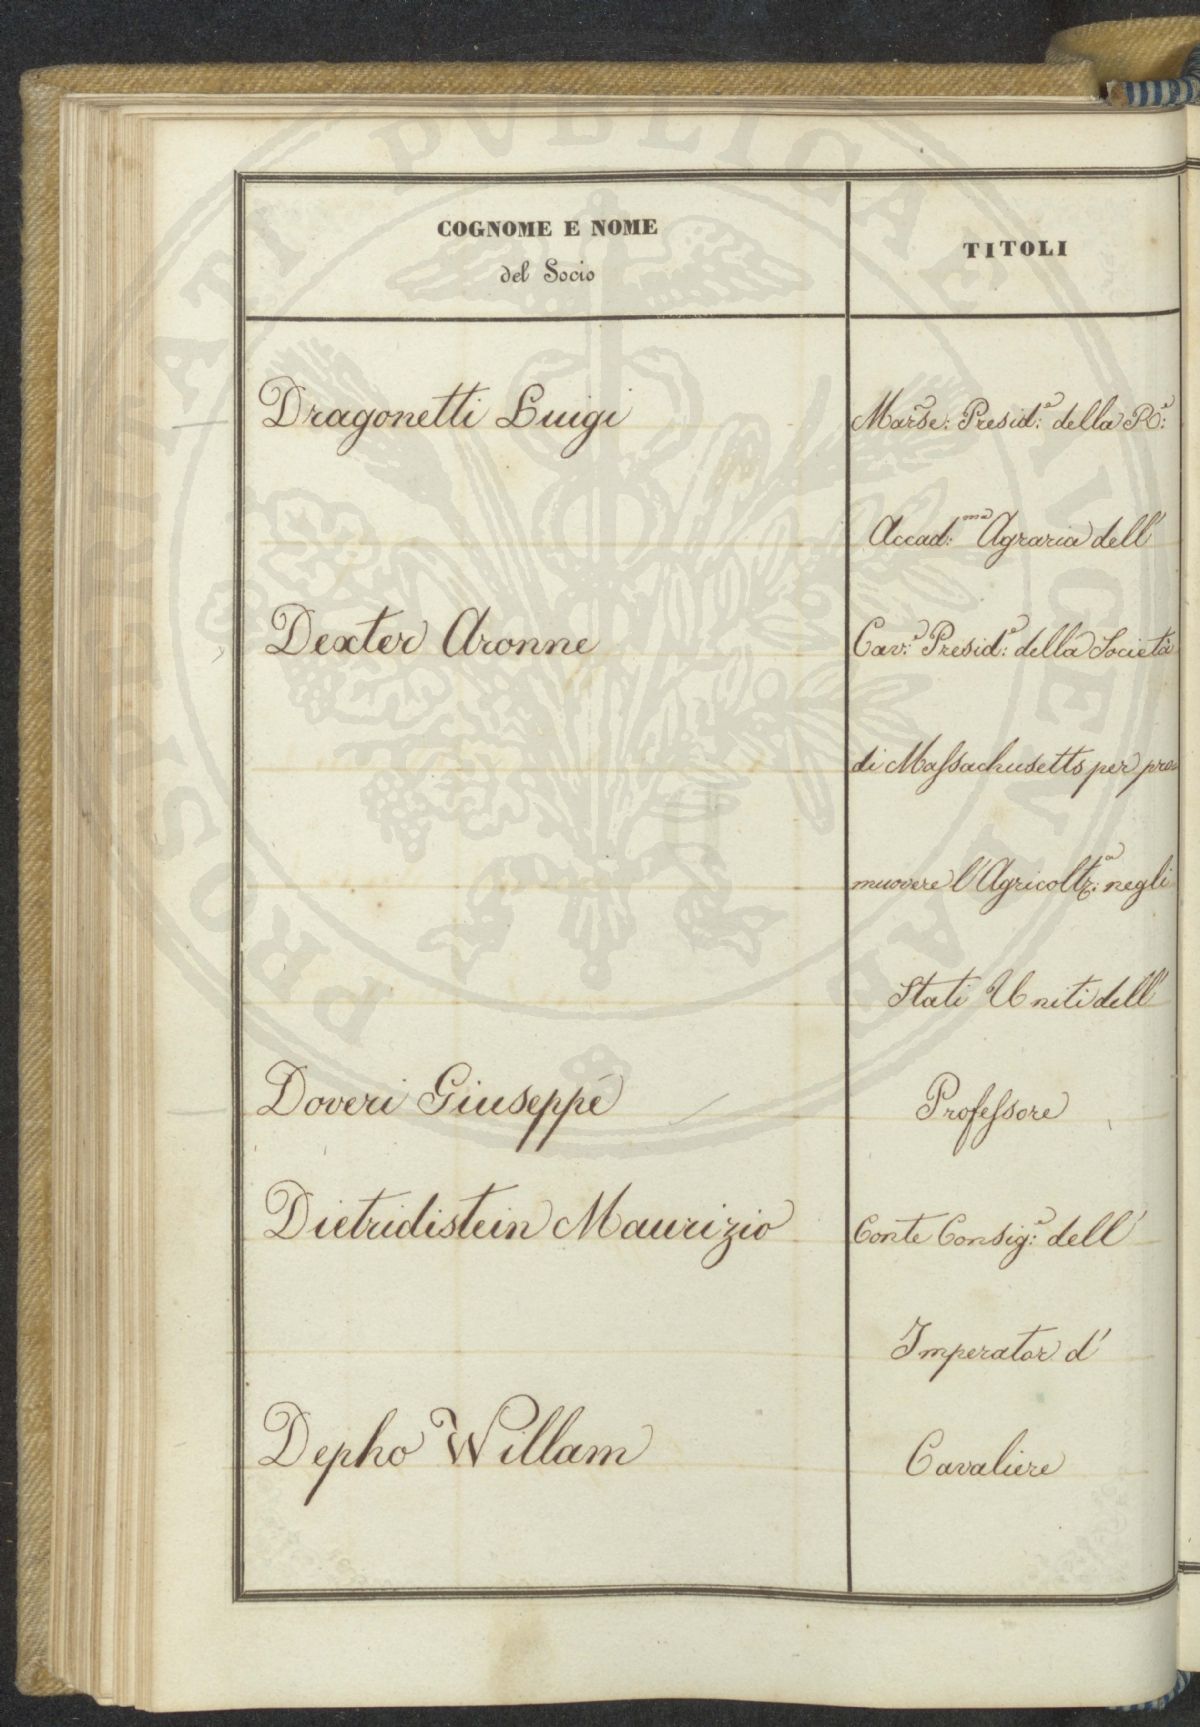 PROSPERITATI PVBLICAE AVGENDAE
COGNOME E NOME
del Socio
TITOLI
Dragonetti Luigi
Marse: Presid:e della Rl:e
Accad:mia Agraria dell'
Dexter Aronne
Cav:e Presid:e della Società
di Massachusetts per pro-
muovere l'Agricoltr:a negli
Stati Uniti dell'
Doveri Giuseppe
Professore
Dietridistein Maurizio
Conte Consig:e dell'
Imperator d'
Depho Willam
Cavaliere